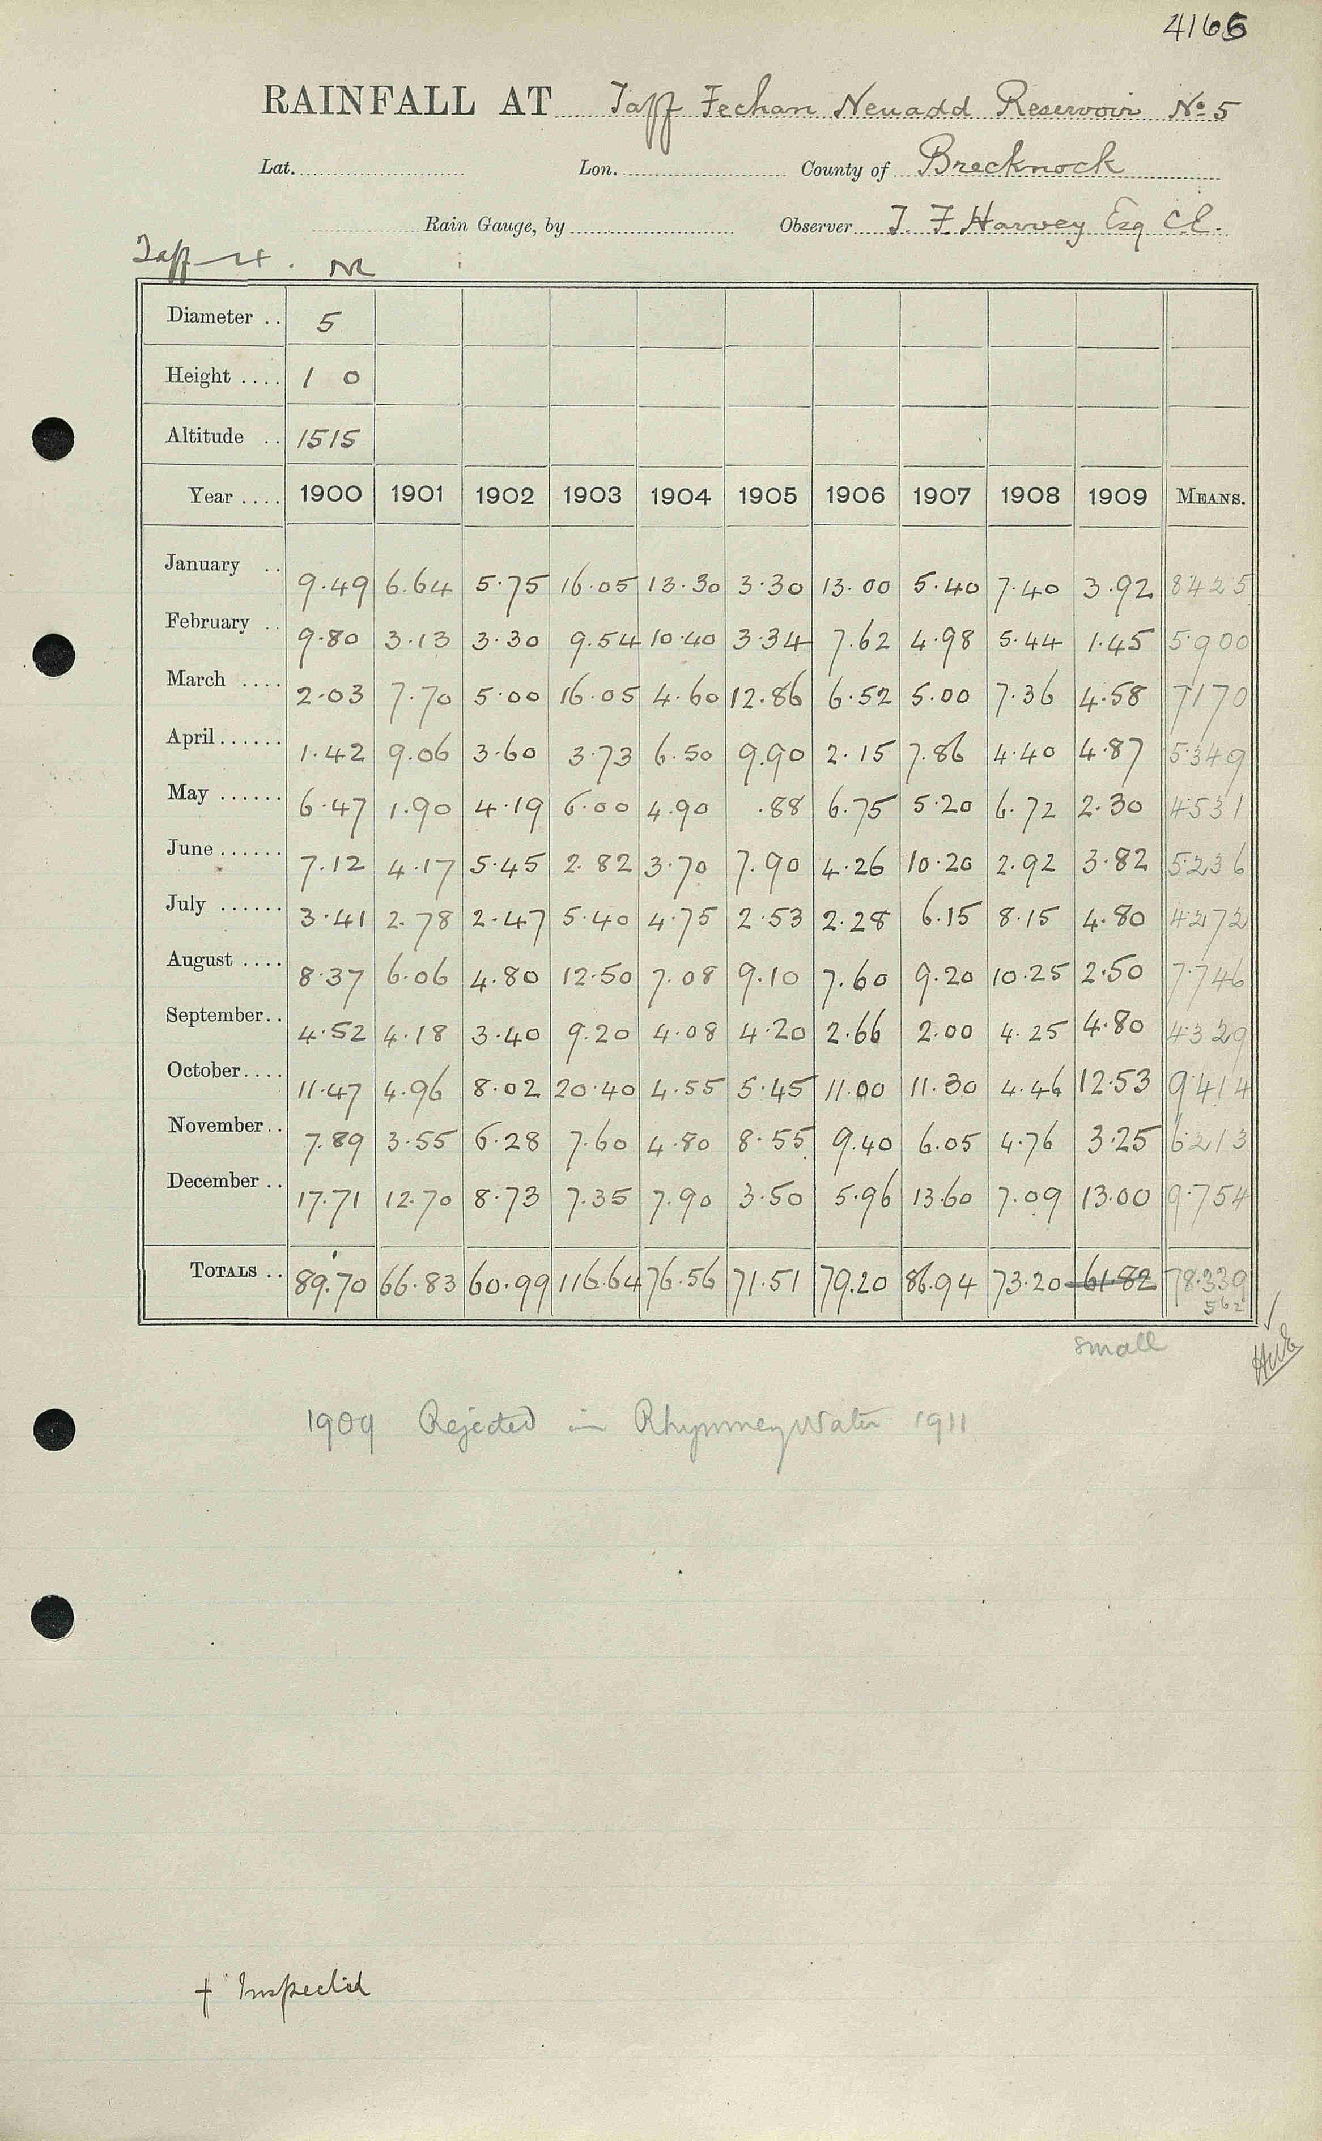 4166
RAINFALL AT Taff Fechan Neuadd Reservoir No. 5
Lat. Lon. County of Brecknock
Rain Gauge, by Observer T. F. Harvey Esq C.E.
Taff
Diameter .. 5
Height .... 1 0
Altitude .. 1515
Year .... 1900 1901 1902 1903 1904 1905 1906 1907 1908 1909 MEANS.
January .. 9.49 6.64 5.75 16.05 13.30 3.30 13.00 5.40 7.40 3.92 8425
February .. 9.80 3.13 3.30 9.54 10.40 3.34 7.62 4.98 5.44 1.45 5900
March .... 2.03 7.70 5.00 16.05 4.60 12.86 6.52 5.00 7.36 4.58 7170
April ...... 1.42 9.06 3.60 3.73 6.50 9.90 2.15 7.86 4.40 4.87 5349
May ...... 6.47 1.90 4.19 6.00 4.90 .88 6.75 5.20 6.72 2.30 4531
June ...... 7.12 4.17 5.45 2.82 3.70 7.90 4.26 10.20 2.92 3.82 5236
July ...... 3.41 2.78 2.47 5.40 4.75 2.53 2.28 6.15 8.15 4.80 4272
August .... 8.37 6.06 4.80 12.50 7.08 9.10 7.60 9.20 10.25 2.50 7.746
September.. 4.52 4.18 3.40 9.20 4.08 4.20 2.66 2.00 4.25 4.80 4329
October.... 11.47 4.96 8.02 20.40 4.55 5.45 11.00 11.30 4.46 12.53 9414
November.. 7.89 3.55 6.28 7.60 4.80 8.55 9.40 6.05 4.76 3.25 6213
December .. 17.71 12.70 8.73 7.35 7.90 3.50 5.96 13.60 7.09 13.00 9.754
TOTALS .. 89.70 66.83 60.99 116.64 76.56 71.51 79.20 86.94 73.20 61.82 78.339
562
small
1909 Rejected in Rhymney Water 1911
+ Inspected